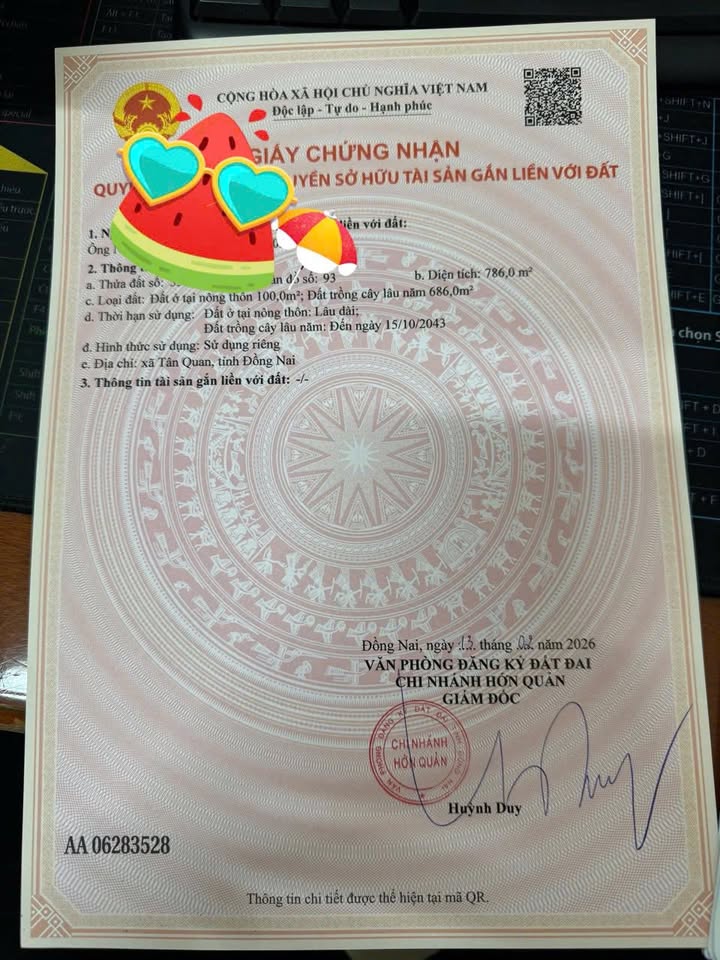 CỘNG HÒA XÃ HỘI CHỦ NGHĨA VIỆT NAM
Độc lập - Tự do - Hạnh phúc
GIẤY CHỨNG NHẬN
SỞ HỮU TÀI SẢN GẮN LIỀN VỚI ĐẤT
1. liền với đất:
Ông
2. Thông
a. Thửa đất số: đồ số: 93 b. Diện tích: 786,0 m²
c. Loại đất: Đất ở tại nông thôn 100,0m²; Đất trồng cây lâu năm 686,0m²
d. Thời hạn sử dụng: Đất ở tại nông thôn: Lâu dài;
Đất trồng cây lâu năm: Đến ngày 15/10/2043
đ. Hình thức sử dụng: Sử dụng riêng
e. Địa chỉ: xã Tân Quan, tỉnh Đồng Nai
3. Thông tin tài sản gắn liền với đất: -/-
Đồng Nai, ngày 13 tháng 02 năm 2026
VĂN PHÒNG ĐĂNG KÝ ĐẤT ĐAI
CHI NHÁNH HỚN QUẢN
GIÁM ĐỐC
VĂN PHÒNG ĐĂNG KÝ ĐẤT ĐAI TỈNH ĐỒNG NAI
CHI NHÁNH
HỚN QUẢN
Huỳnh Duy
AA 06283528
Thông tin chi tiết được thể hiện tại mã QR.